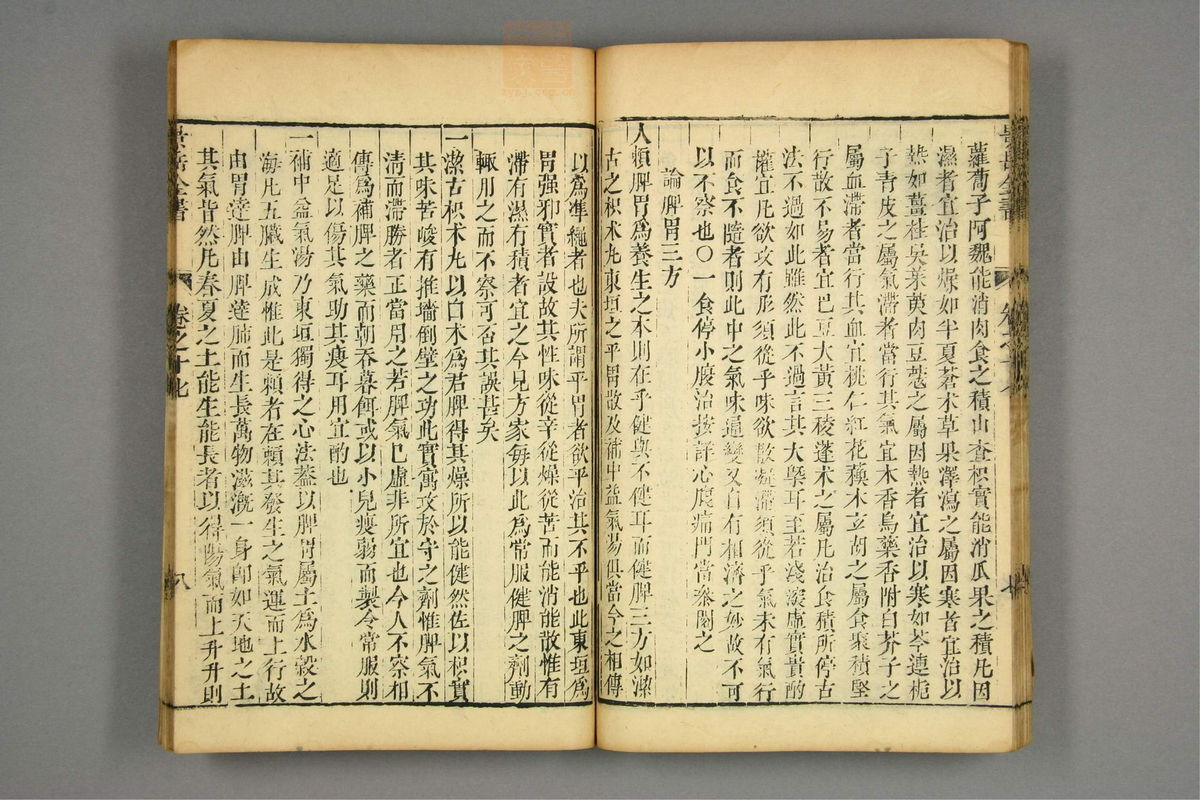 蘿蔔子阿魏能消肉食之積山查枳實能消瓜果之積凡因
濕者宜治以燥如半夏蒼术草果澤瀉之屬因寒者宜治以
熱如薑桂吳茱萸肉豆蔻之屬因熱者宜治以寒如芩連梔
子青皮之屬氣滯者當行其氣宜木香烏藥香附白芥子之
屬血滯者當行其血宜桃仁紅花蘓木玄胡之屬食聚積堅
行散不易者宜巴豆大黃三稜蓬术之屬凡治食積所停古
法不過如此雖然此不過言其大槩耳至若淺深虛實貴酌
權宜凡欲攻有形須從乎味欲散凝滯須從乎氣未有氣行
而食不隨者則此中之氣味通變又自有相濟之妙故不可
以不察也〇一食停小腹治按詳心腹痛門當叅閱之
論脾胃三方
人類脾胃爲養生之本則在乎健與不健耳而健脾三方如潔
古之枳术丸東垣之平胃散及補中益氣湯俱當今之相傳
以爲凖繩者也夫所謂平胃者欲平治其不平也此東垣爲
胃强邪實者設故其性味從辛從燥從苦而能消能散惟有
滯有濕有積者宜之今見方家每以此爲常服健脾之劑動
輒用之而不察可否其誤甚矣
一潔古枳术丸以白术爲君脾得其燥所以能健然佐以枳實
其味苦峻有推墻倒壁之功此實寓攻於守之劑惟脾氣不
清而滯勝者正當用之若脾氣已虛非所宜也今人不察相
傳爲補脾之藥而朝吞暮餌或以小兒瘦弱而製令常服則
適足以傷其氣助其瘦耳用宜酌也
一補中益氣湯乃東垣獨得之心法葢以脾胃屬土爲水穀之
海凡五臟生成惟此是賴者在賴其發生之氣運而上行故
由胃達脾由脾達肺而生長萬物滋溉一身卽如天地之土
其氣皆然凡春夏之土能生能長者以得陽氣而上升升則
景岳全書
卷之十七
八
景岳全書
卷之十七
七